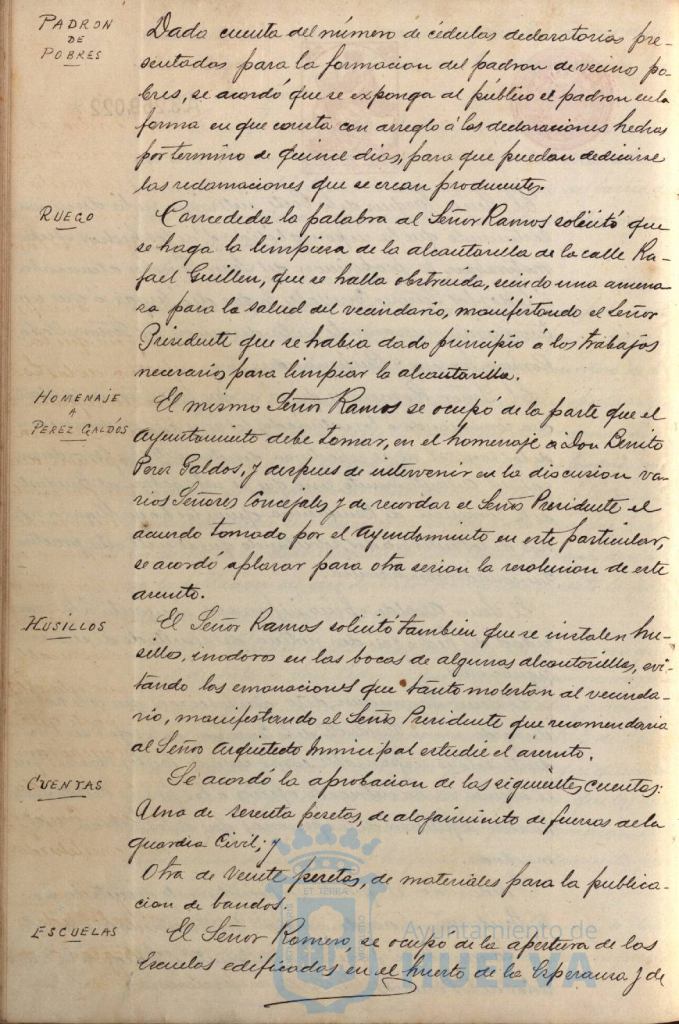 PADRON
DE
POBRES
Dada cuenta del número de cédulas declaratorias pre-
sentadas para la formacion del padron de vecinos po-
bres, se acordó que se exponga al público el padron en la
forma en que consta con arreglo á las declaraciones hechas
por termino de quince dias, para que puedan dedicirse
las reclamaciones que se crean producentes.
RUEGO
Concedida la palabra al Señor Ramos solicitó que
se haga la limpiesa de la alcantarilla de la calle Ra-
fael Guillen, que se halla obstruida, siendo una amena-
za para la salud del vecindario, manifestando el Señor
Presidente que se habia dado principio á los trabajos
necesarios para limpiar la alcantarilla.
HOMENAJE
A
PEREZ GALDÓS
El mismo Señor Ramos se ocupó de la parte que el
Ayuntamiento debe tomar, en el homenaje á Don Benito
Perez Galdos, y despues de intervenir en la discusion va-
rios Señores Concejales y de recordar el Señor Presidente el
acuerdo tomado por el Ayuntamiento en este particular,
se acordó aplazar para otra sesion la resolucion de este
asunto.
HUSILLOS
El Señor Ramos solicitó tambien que se instalen hu-
sillos, inodoros en las bocas de algunas alcantarillas, evi-
tando las emanaciones que tanto molestan al vecinda-
rio, manifestando el Señor Presidente que recomendaria
al Señor Arquitecto municipal estudie el asunto.
CUENTAS
Se acordó la aprobacion de las siguientes cuentas:
Una de sesenta pesetas, de alojamiento de fuerzas de la
guardia Civil; y
Otra de veinte pesetas, de materiales para la publica-
cion de bandos.
ESCUELAS
El Señor Romero, se ocupó de la apertura de las
Escuelas edificadas en el huerto de la Esperanza y de
Ayuntamiento de
HUELVA